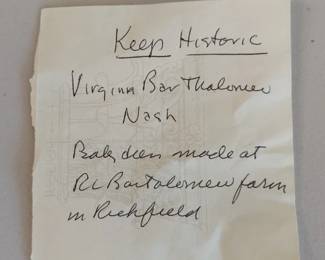 Keep Historic
Virginia Bartholomew
Nash
Baby dress made at
RL Bartolomew farm
in Richfield